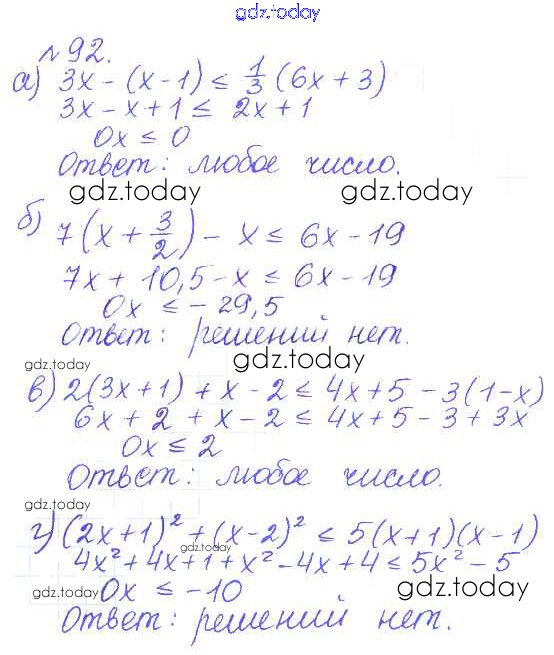 gdz.today
№92.
а) 3x - (x - 1) ≤ 1/3 (6x + 3)
3x - x + 1 ≤ 2x + 1
0x ≤ 0
Ответ: любое число.
gdz.today gdz.today
б) 7(x + 3/2) - x ≤ 6x - 19
7x + 10,5 - x ≤ 6x - 19
0x ≤ - 29,5
Ответ: решений нет.
gdz.today gdz.today
в) 2(3x + 1) + x - 2 ≤ 4x + 5 - 3(1 - x)
6x + 2 + x - 2 ≤ 4x + 5 - 3 + 3x
0x ≤ 2
Ответ: любое число.
gdz.today
г) (2x + 1)² + (x - 2)² ≤ 5(x + 1)(x - 1)
gdz.today
4x² + 4x + 1 + x² - 4x + 4 ≤ 5x² - 5
0x ≤ -10
gdz.today gdz.today
Ответ: решений нет.